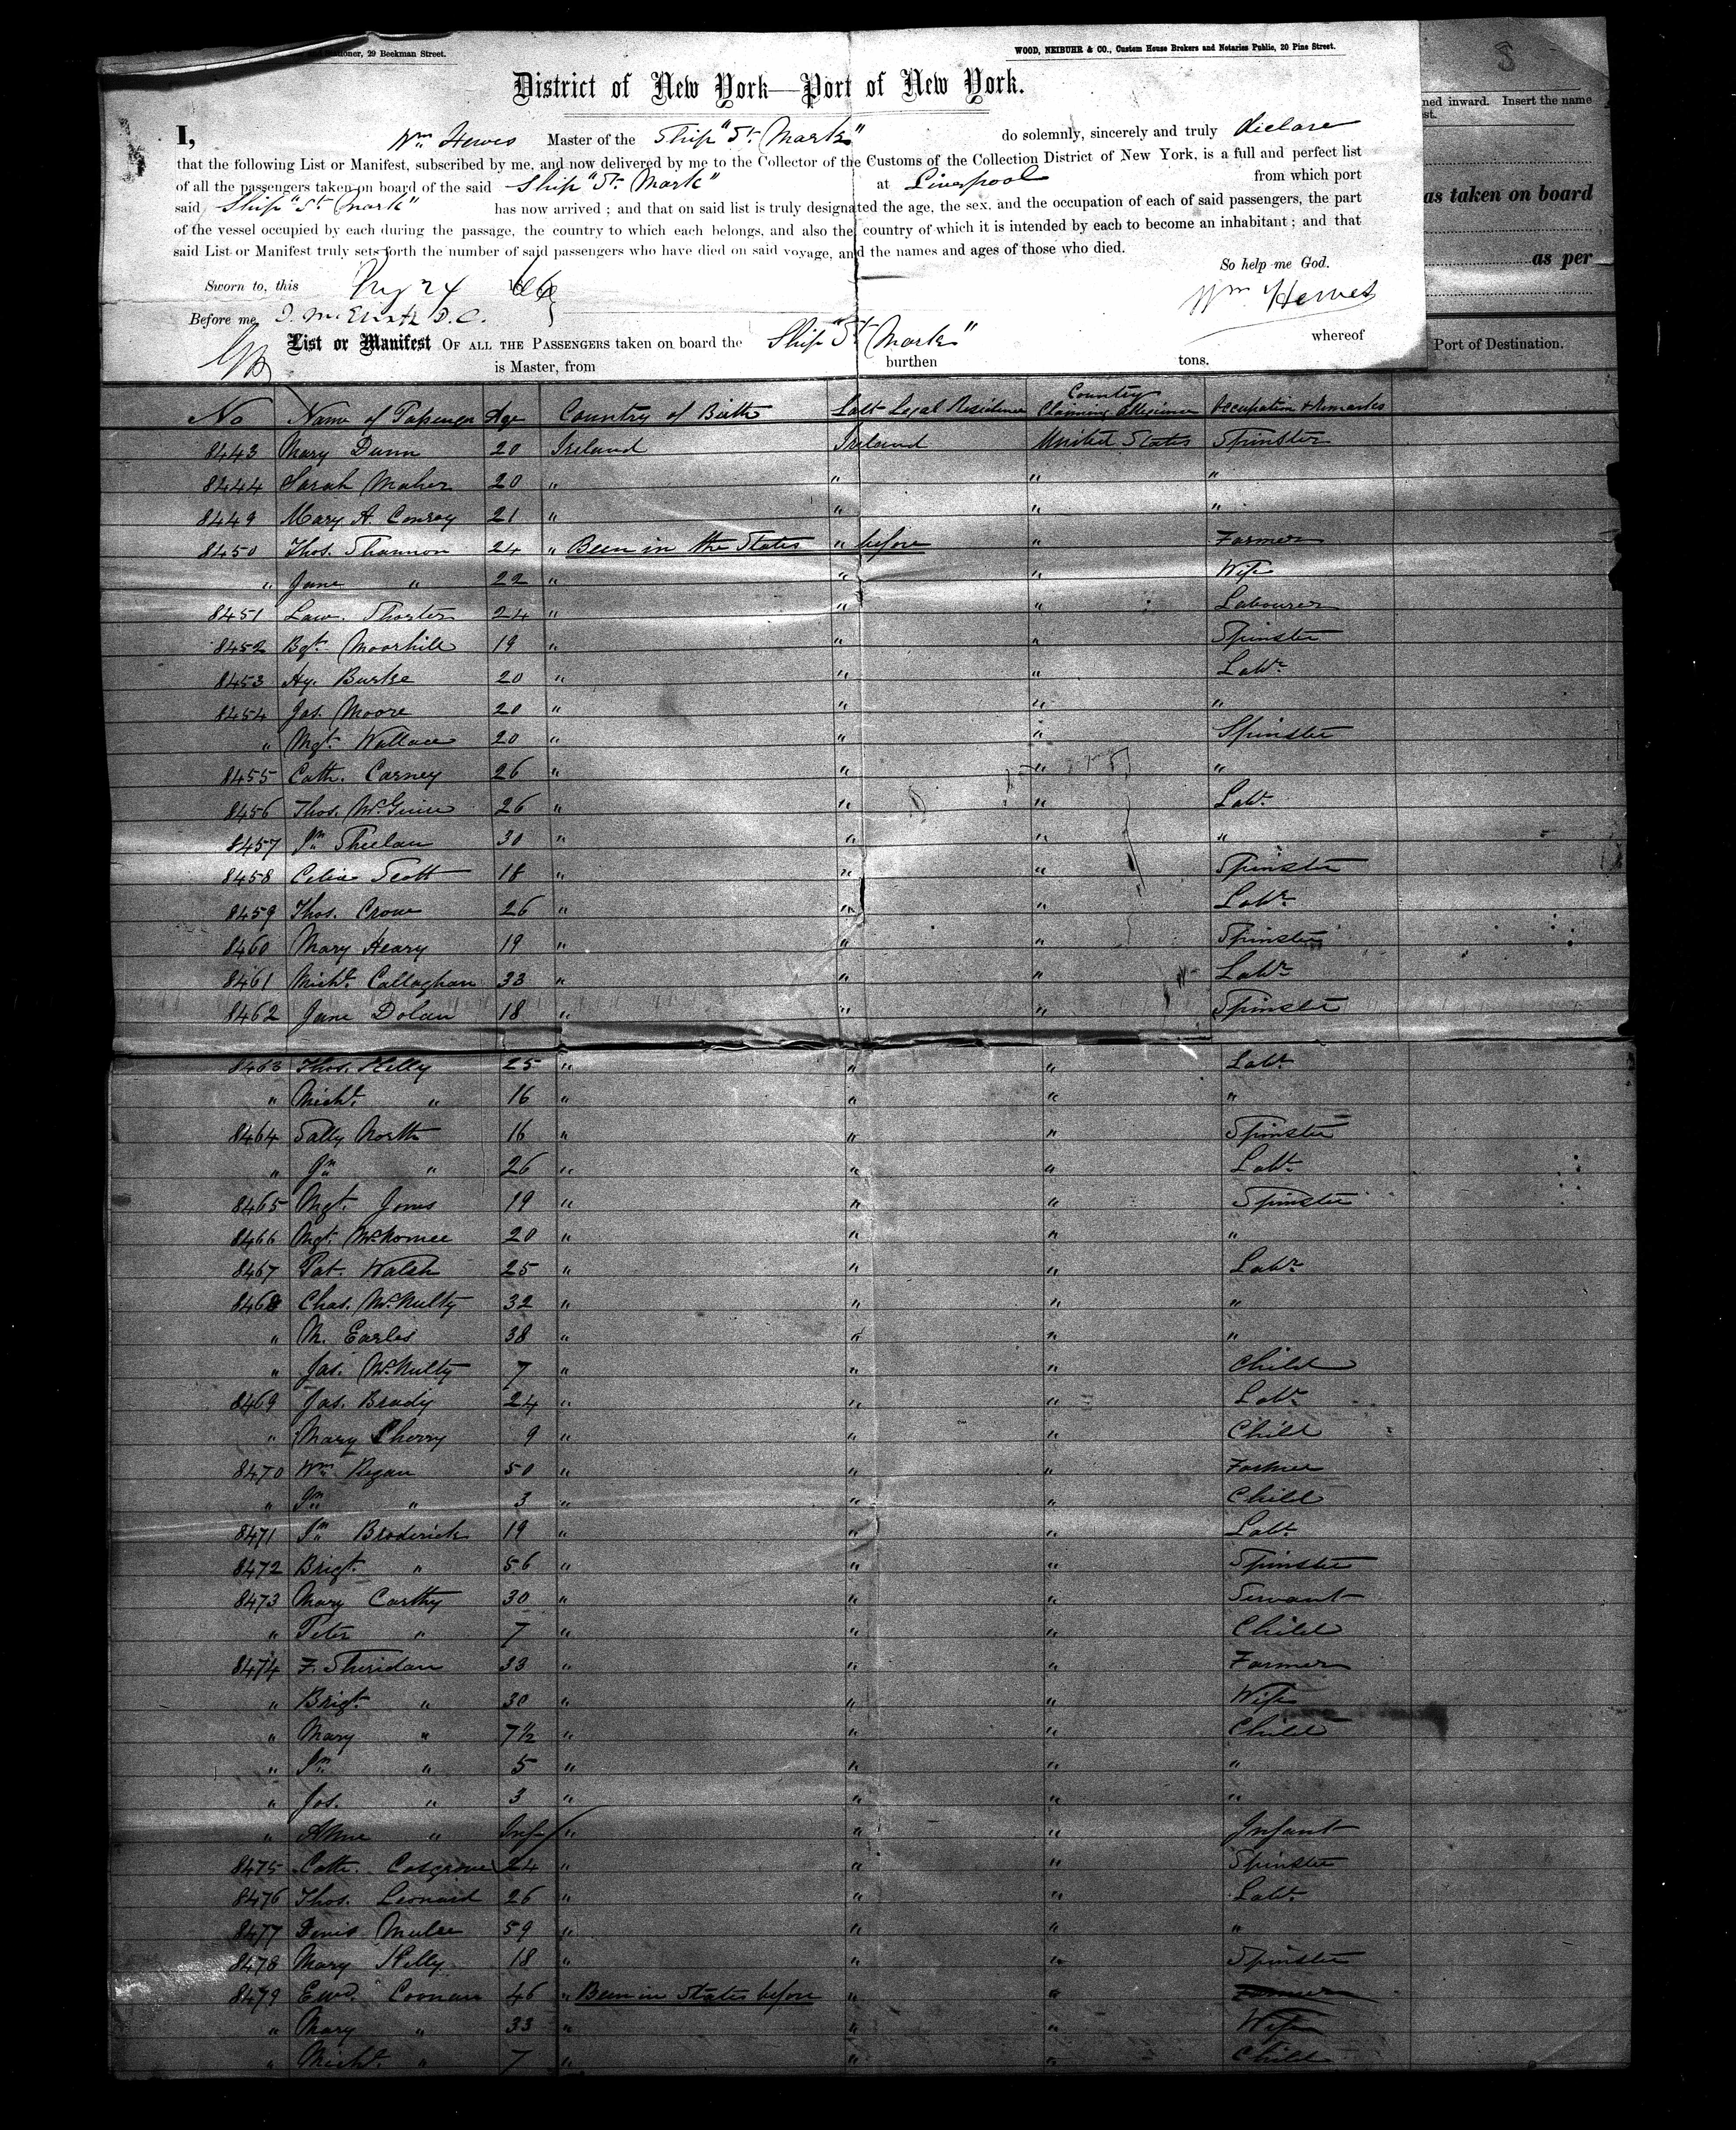 Stationer, 29 Beekman Street.
WOOD, NEIBUHR & CO., Custom House Brokers and Notaries Public, 20 Pine Street.
District of New York—Port of New York.
I, Wm Hewes Master of the Ship "St Mark" do solemnly, sincerely and truly declare
that the following List or Manifest, subscribed by me, and now delivered by me to the Collector of the Customs of the Collection District of New York, is a full and perfect list
of all the passengers taken on board of the said Ship "St Mark" at Liverpool from which port
said Ship "St Mark" has now arrived; and that on said list is truly designated the age, the sex, and the occupation of each of said passengers, the part
of the vessel occupied by each during the passage, the country to which each belongs, and also the country of which it is intended by each to become an inhabitant; and that
said List or Manifest truly sets forth the number of said passengers who have died on said voyage, and the names and ages of those who died.
So help me God.
Sworn to, this 24 1866
Wm Hewes
Before me
List or Manifest OF ALL THE PASSENGERS taken on board the Ship "St Mark" whereof
is Master, from burthen tons.
ned inward. Insert the name
st.
as taken on board
as per
Port of Destination.
No Name of Passenger Age Country of Birth Last Legal Residence Country Claiming Allegiance Occupation & Remarks
8443 Mary Dunn 20 Ireland Ireland United States Spinster
8444 Sarah Maher 20 " " " "
8449 Mary A. Conroy 21 " " " "
8450 Thos. Shannon 24 " Been in the States " before " Farmer
" Jane " 22 " " " Wife
8451 Law. Thorter 24 " " " Labourer
8452 Bgt. Moorhill 19 " " " Spinster
8453 Hy. Burke 20 " " " Labr
8454 Jas. Moore 20 " " " "
" Mgt. Wallace 20 " " " Spinster
8455 Cath. Carney 26 " " " "
8456 Thos. McGuire 26 " " " Labr
8457 Jn Theelan 30 " " " "
8458 Celia Scott 18 " " " Spinster
8459 Thos. Crow 26 " " " Labr
8460 Mary Heary 19 " " " Spinster
8461 Michl. Callaghan 33 " " " Labr
8462 Jane Dolan 18 " " " Spinster
8463 Thos. Kelly 25 " " " Labr
" Michl. " 16 " " " "
8464 Sally North 16 " " " Spinster
" Jn " 26 " " " Labr
8465 Mgt. Jones 19 " " " Spinster
8466 Mgt. 20 " " " "
8467 Pat. Walsh 25 " " " Labr
8468 Chas. McNulty 32 " " " "
" M. Earles 38 " " " "
" Jas. McNulty 7 " " " Child
8469 Jas. Brady 24 " " " Labr
" Mary Cherry 9 " " " Child
8470 Wm Regan 50 " " " Farmer
" Jn " 3 " " " Child
8471 Jn Broderick 19 " " " Labr
8472 Brigt. " 56 " " " Spinster
8473 Mary Carthy 30 " " " Servant
" Peter " 7 " " " Child
8474 F. Sheridan 33 " " " Farmer
" Brigt. " 30 " " " Wife
" Mary " 7½ " " " Child
" Jn " 5 " " " "
" Jos. " 3 " " " "
" Anne " Inf " " " Infant
8475 Cath. Cosgrove 24 " " " Spinster
8476 Thos. Leonard 26 " " " Labr
8477 Denis 59 " " " "
8478 Mary Kelly 18 " " " Spinster
8479 Ewd. Coonan 46 " Been in States before " " Farmer
" Mary " 33 " " " Wife
" Michl. " 7 " " " Child